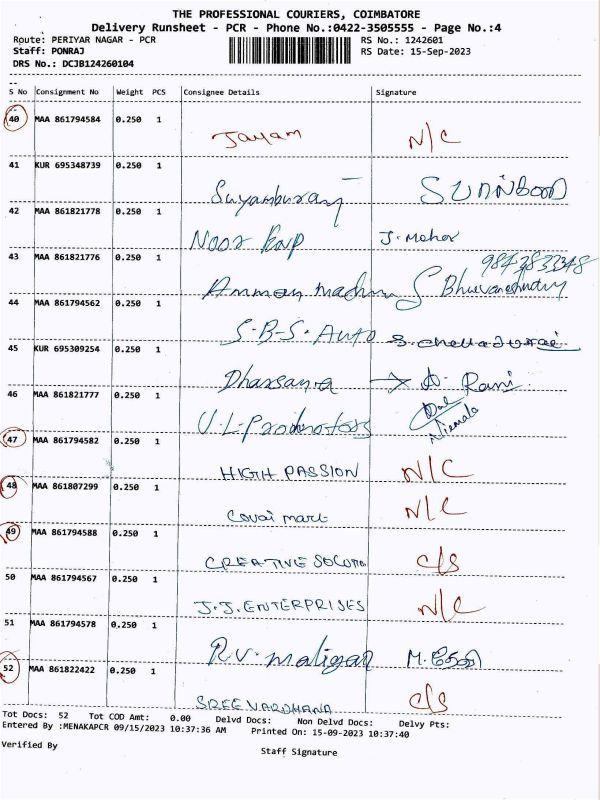 THE PROFESSIONAL COURIERS, COIMBATORE
Delivery Runsheet - PCR - Phone No.:0422-3505555 - Page No.:4
Route: PERIYAR NAGAR - PCR RS No.: 1242601
Staff: PONRAJ RS Date: 15-Sep-2023
DRS No.: DCJB124260104
S No Consignment No Weight PCS Consignee Details Signature
40 MAA 861794584 0.250 1
Jayam N/C
41 KUR 695348739 0.250 1
42 MAA 861821778 0.250 1
Noor J. Mohar
43 MAA 861821776 0.250 1
Amman
44 MAA 861794562 0.250 1
S.B.S. Auto
45 KUR 695309254 0.250 1
Dharsana → A. Rani
46 MAA 861821777 0.250 1
Nirmala
47 MAA 861794582 0.250 1
HIGH PASSION N/C
48 MAA 861807299 0.250 1
Covai mart N/C
49 MAA 861794588 0.250 1
CREATIVE c/s
50 MAA 861794567 0.250 1
J.J. ENTERPRISES N/C
51 MAA 861794578 0.250 1
R.V. maligai
52 MAA 861822422 0.250 1
SREE VARDHANA c/s
Tot Docs: 52 Tot COD Amt: 0.00 Delvd Docs: Non Delvd Docs: Delvy Pts:
Entered By :MENAKAPCR 09/15/2023 10:37:36 AM Printed On: 15-09-2023 10:37:40
Verified By
Staff Signature